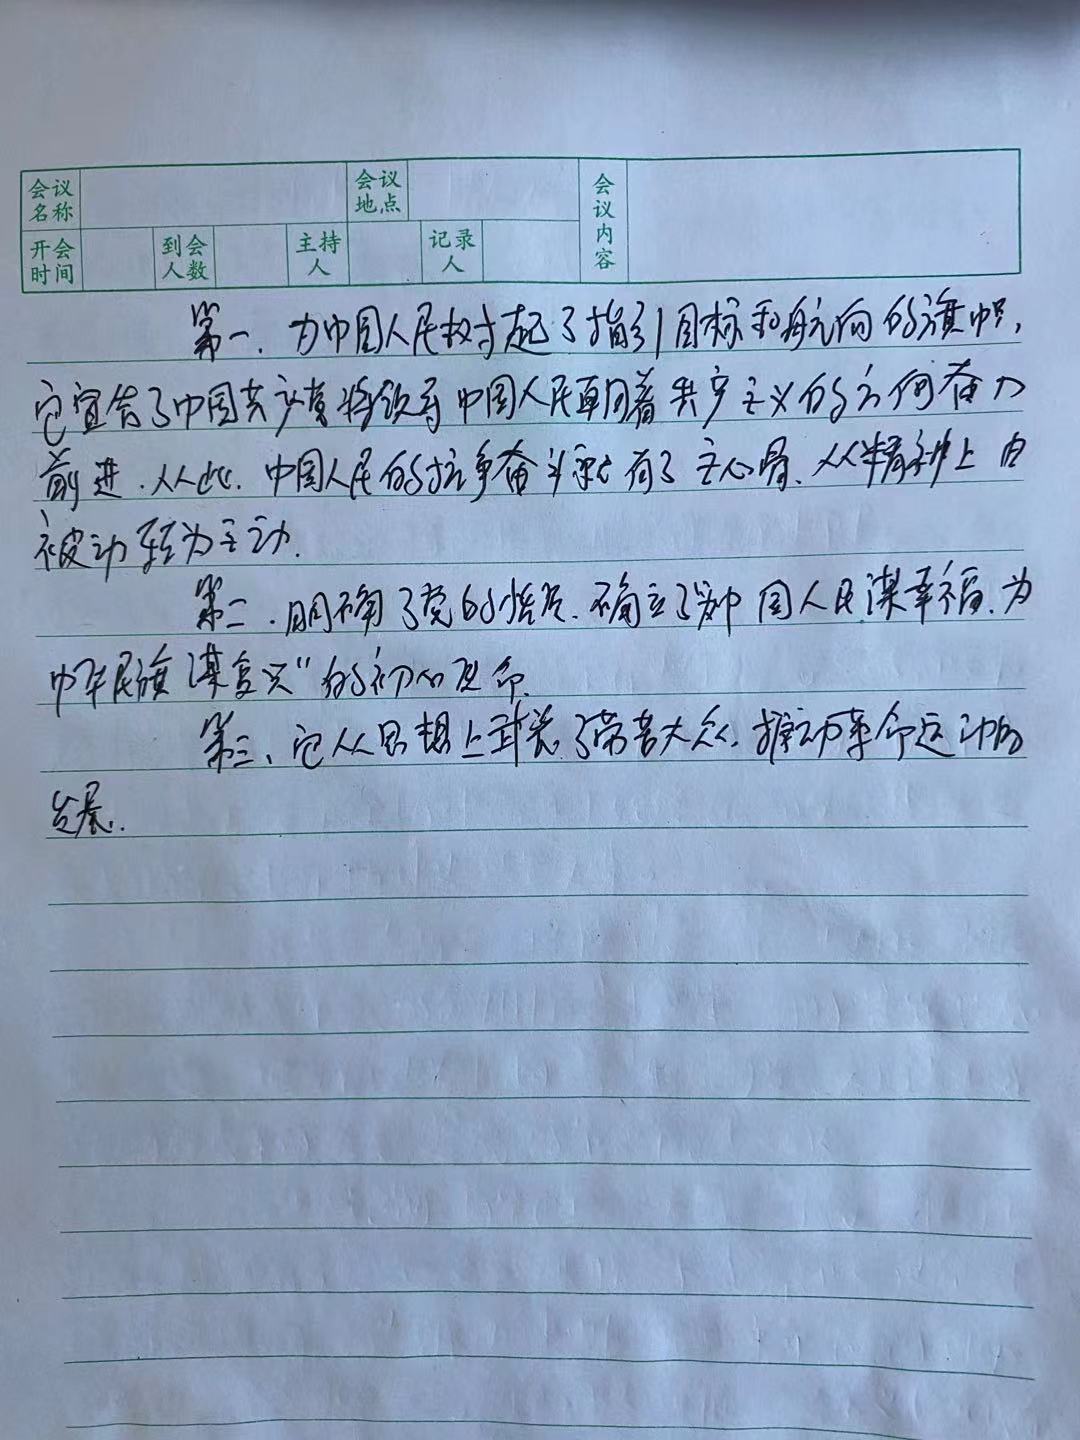 会议名称 会议地点 会议内容
开会时间 到会人数 主持人 记录人
第一、为中国人民树起了指引目标和航向的旗帜，
它宣告了中国共产党将领导中国人民面向着共产主义的方向奋力
前进，从此，中国人民的抗争奋斗就有了主心骨、从精神上由
被动转为主动.
第二、明确了党的性质、确立了“为中国人民谋幸福、为
中华民族谋复兴”的初心使命.
第三、它从思想上武装了劳苦大众、推动革命运动的
发展.